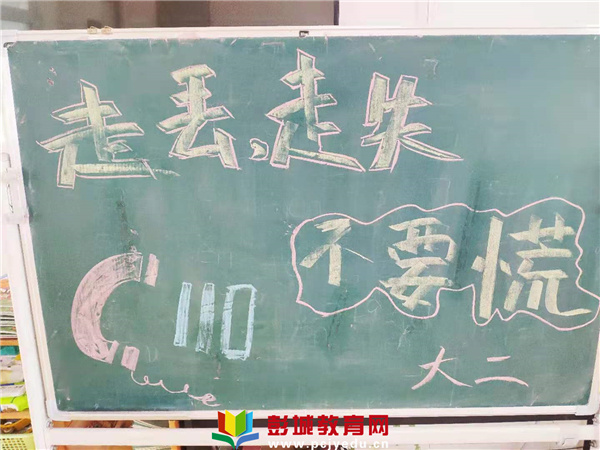 走丢、走失
不要慌
110
大二
彭城教育网
www.pcjyedu.cn